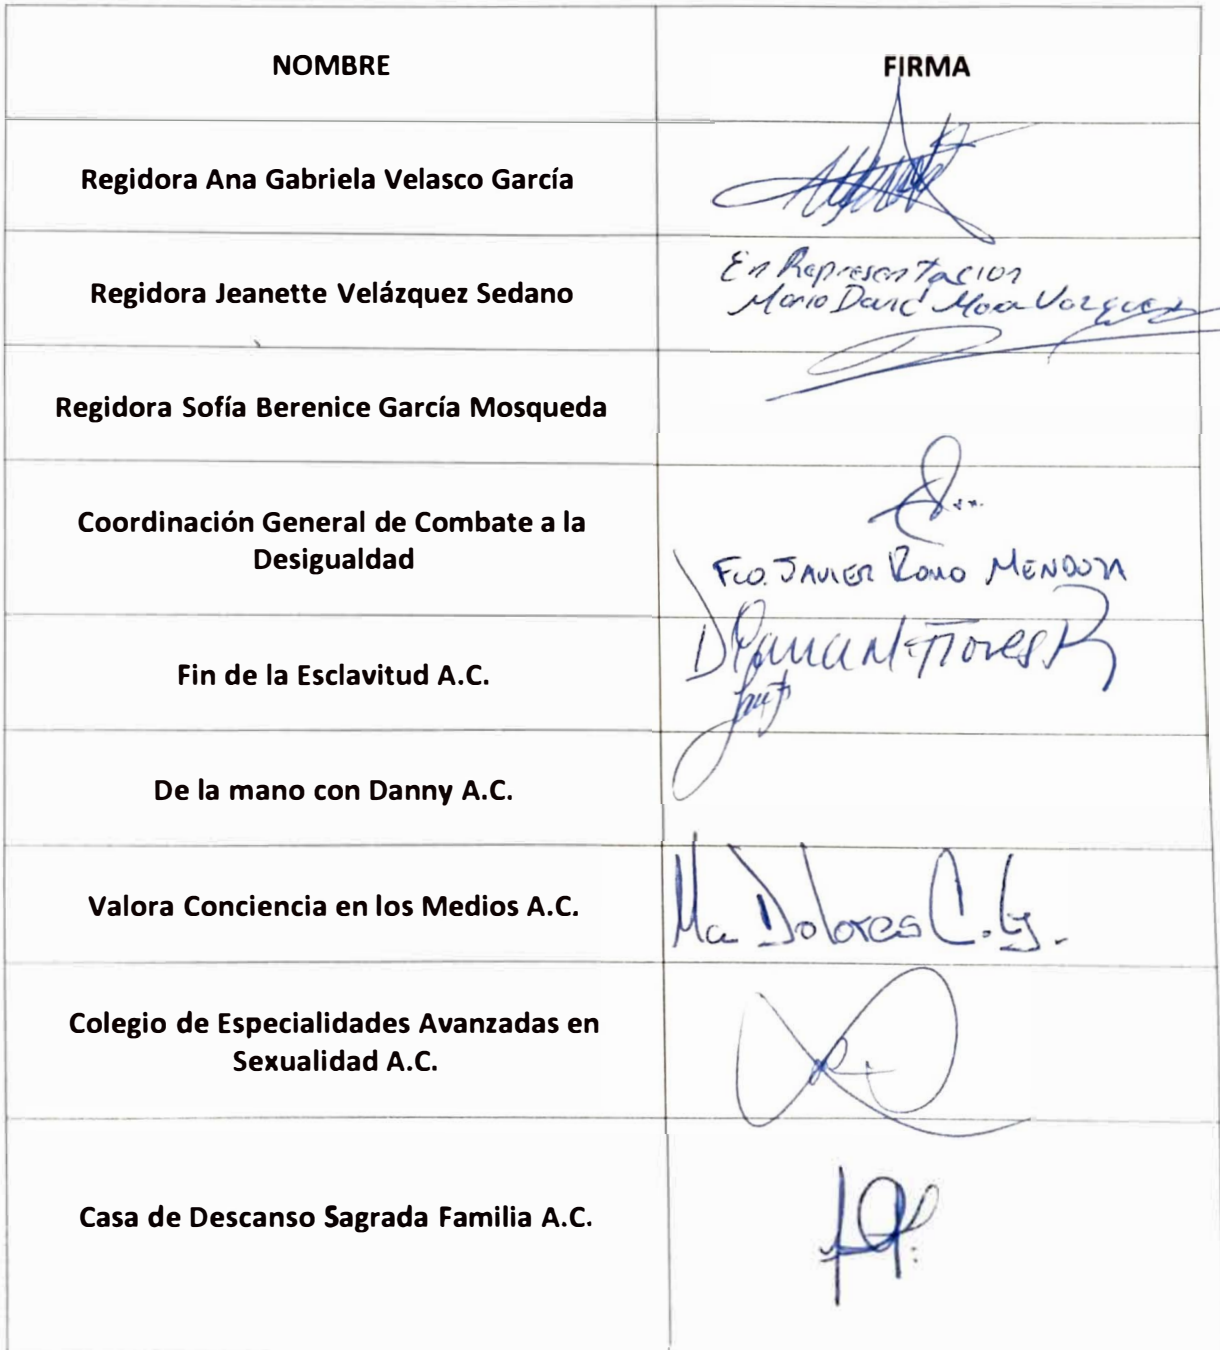 NOMBRE
FIRMA
Regidora Ana Gabriela Velasco García
Regidora Jeanette Velázquez Sedano
En Representacion
Mario David Mora Vazquez
Regidora Sofía Berenice García Mosqueda
Coordinación General de Combate a la
Desigualdad
Fco. JAVIER ROMO MENDOZA
Fin de la Esclavitud A.C.
Flores R
De la mano con Danny A.C.
Valora Conciencia en los Medios A.C.
Ma Dolores C. G.
Colegio de Especialidades Avanzadas en
Sexualidad A.C.
Casa de Descanso Sagrada Familia A.C.